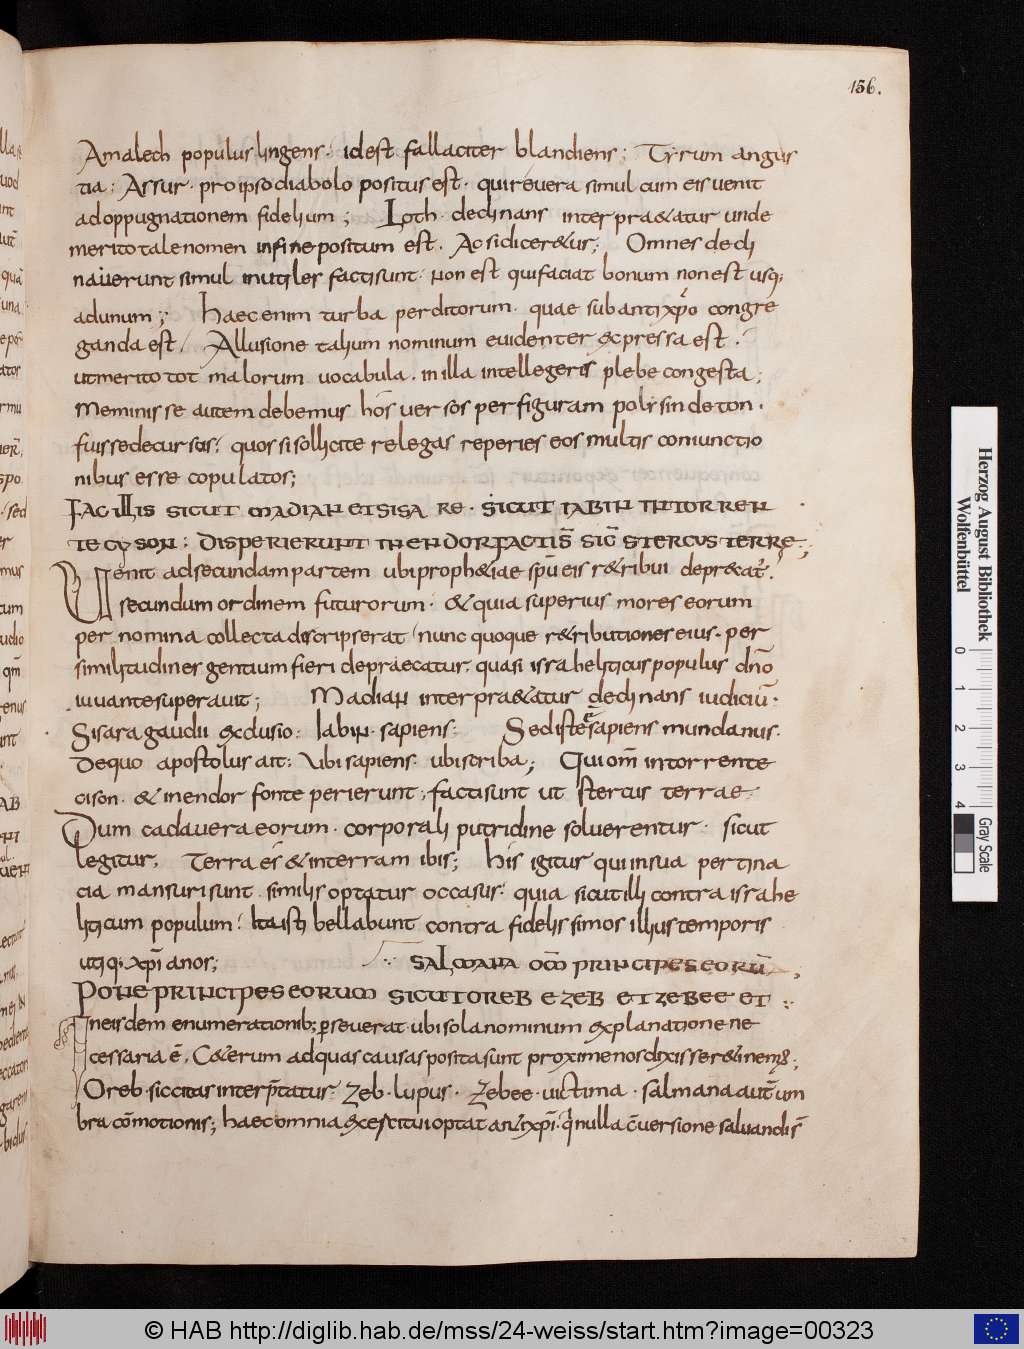 156.
Amalech populus lingens. idest fallaciter blandiens; Tyrum angus
tia; Assur. pro ipso diabolo positus est. qui revera simul cum eis venit
ad oppugnationem fidelium; Loth. declinans interpraetatur unde
merito tale nomen in fine positum est. Ac si diceretur; Omnes decli
naverunt simul inutiles facti sunt. non est qui faciat bonum non est usq;
ad unum; Haec enim turba perditorum. quae sub antixp̄o congre
ganda est. Allusione talium nominum evidenter expressa est.
ut merito tot malorum vocabula. in illa intellegeris plebe congesta;
Meminisse autem debemus hos versos per figuram polysindeton.
fuisse decursos. quos si sollicite relegas reperies eos multis coniunctio
nibus esse copulatos;
FAC ILLIS SICUT MADIAN ET SISARE. SICUT IABIN IN TORREN
TE CYSON: DISPERIERUNT IN ENDOR FACTI S̄ SIC̄ STERCUS TERRE;
Venit ad secundam partem ubi prophetiae sp̄u eis retribui deprecat̄.
secundum ordinem futurorum. & quia superius mores eorum
per nomina collecta discripserat nunc quoque retributiones eius. per
similitudines gentium fieri depraecatur. quas israheliticus populus dn̄o
iuvante superavit; Madian interpraetatur declinans iudiciū.
Sisara gaudii exclusio. Iabin. sapiens. Sed iste sapiens mundanus.
De quo apostolus ait: Ubi sapiens. ubi scriba; Qui om̄ in torrente
cison. & in endor fonte perierunt, facti sunt ut stercus terrae
Dum cadavera eorum. corporali putridine solverentur. sicut
legitur. Terra es & in terram ibis; His igitur qui in sua pertina
cia mansuri sunt. similis optatur occasus. quia sicut illi contra israhe
liticum populum. Ita isti bellabunt contra fidelissimos illius temporis
utiq; xp̄ianos;
SALMANA OM̄ PRINCIPES EORŪ;
PONE PRINCIPES EORUM SICUT OREB E ZEB ET ZEBEE ET
In eisdem enumerationib; perseverat. ubi sola nominum explanatio ne
cessaria ē. Ceterum ad quas causas posita sunt proxime nos dixisse retinem;
Oreb. siccitas interp̄tatur. Zeb. lupus. Zebee. victima. salmana aut̄ um
bra cōmotionis; haec omnia execitui optat antixp̄i. q̄ nulla c̄versione salvandi s̄
Herzog August Bibliothek
Wolfenbüttel
0 1 2 3 4
Gray Scale
© HAB http://diglib.hab.de/mss/24-weiss/start.htm?image=00323